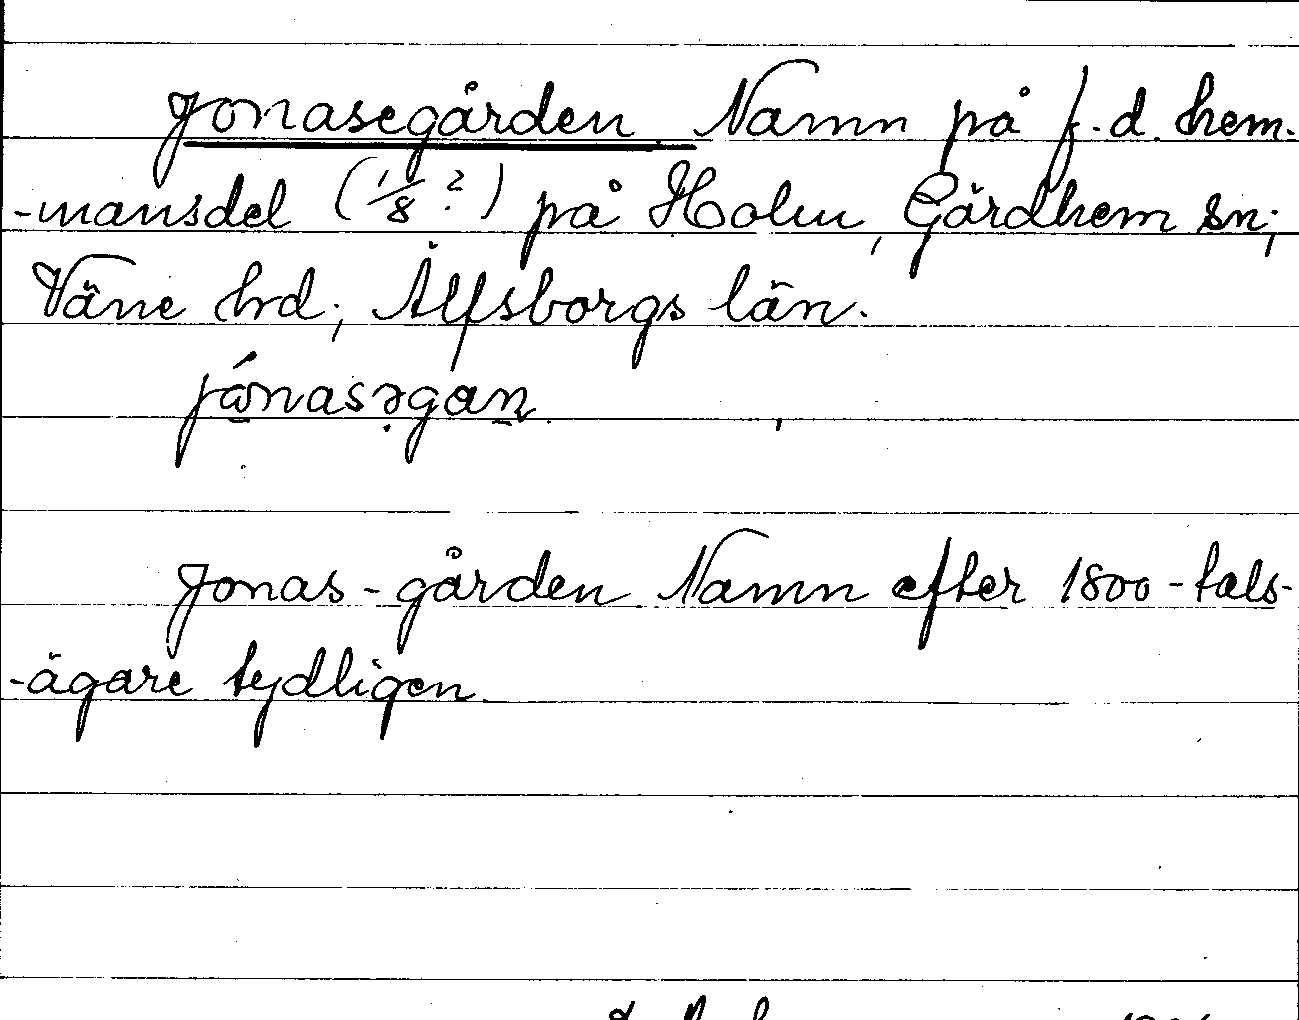 Jonasegården Namn på f.d. hem-
-mansdel (1/8?) på Holm, Gärdhem sn;
Väne hd; Älfsborgs län.
jó̱nasəgaṉ
Jonas-gården Namn efter 1800-tals-
-ägare tydligen.